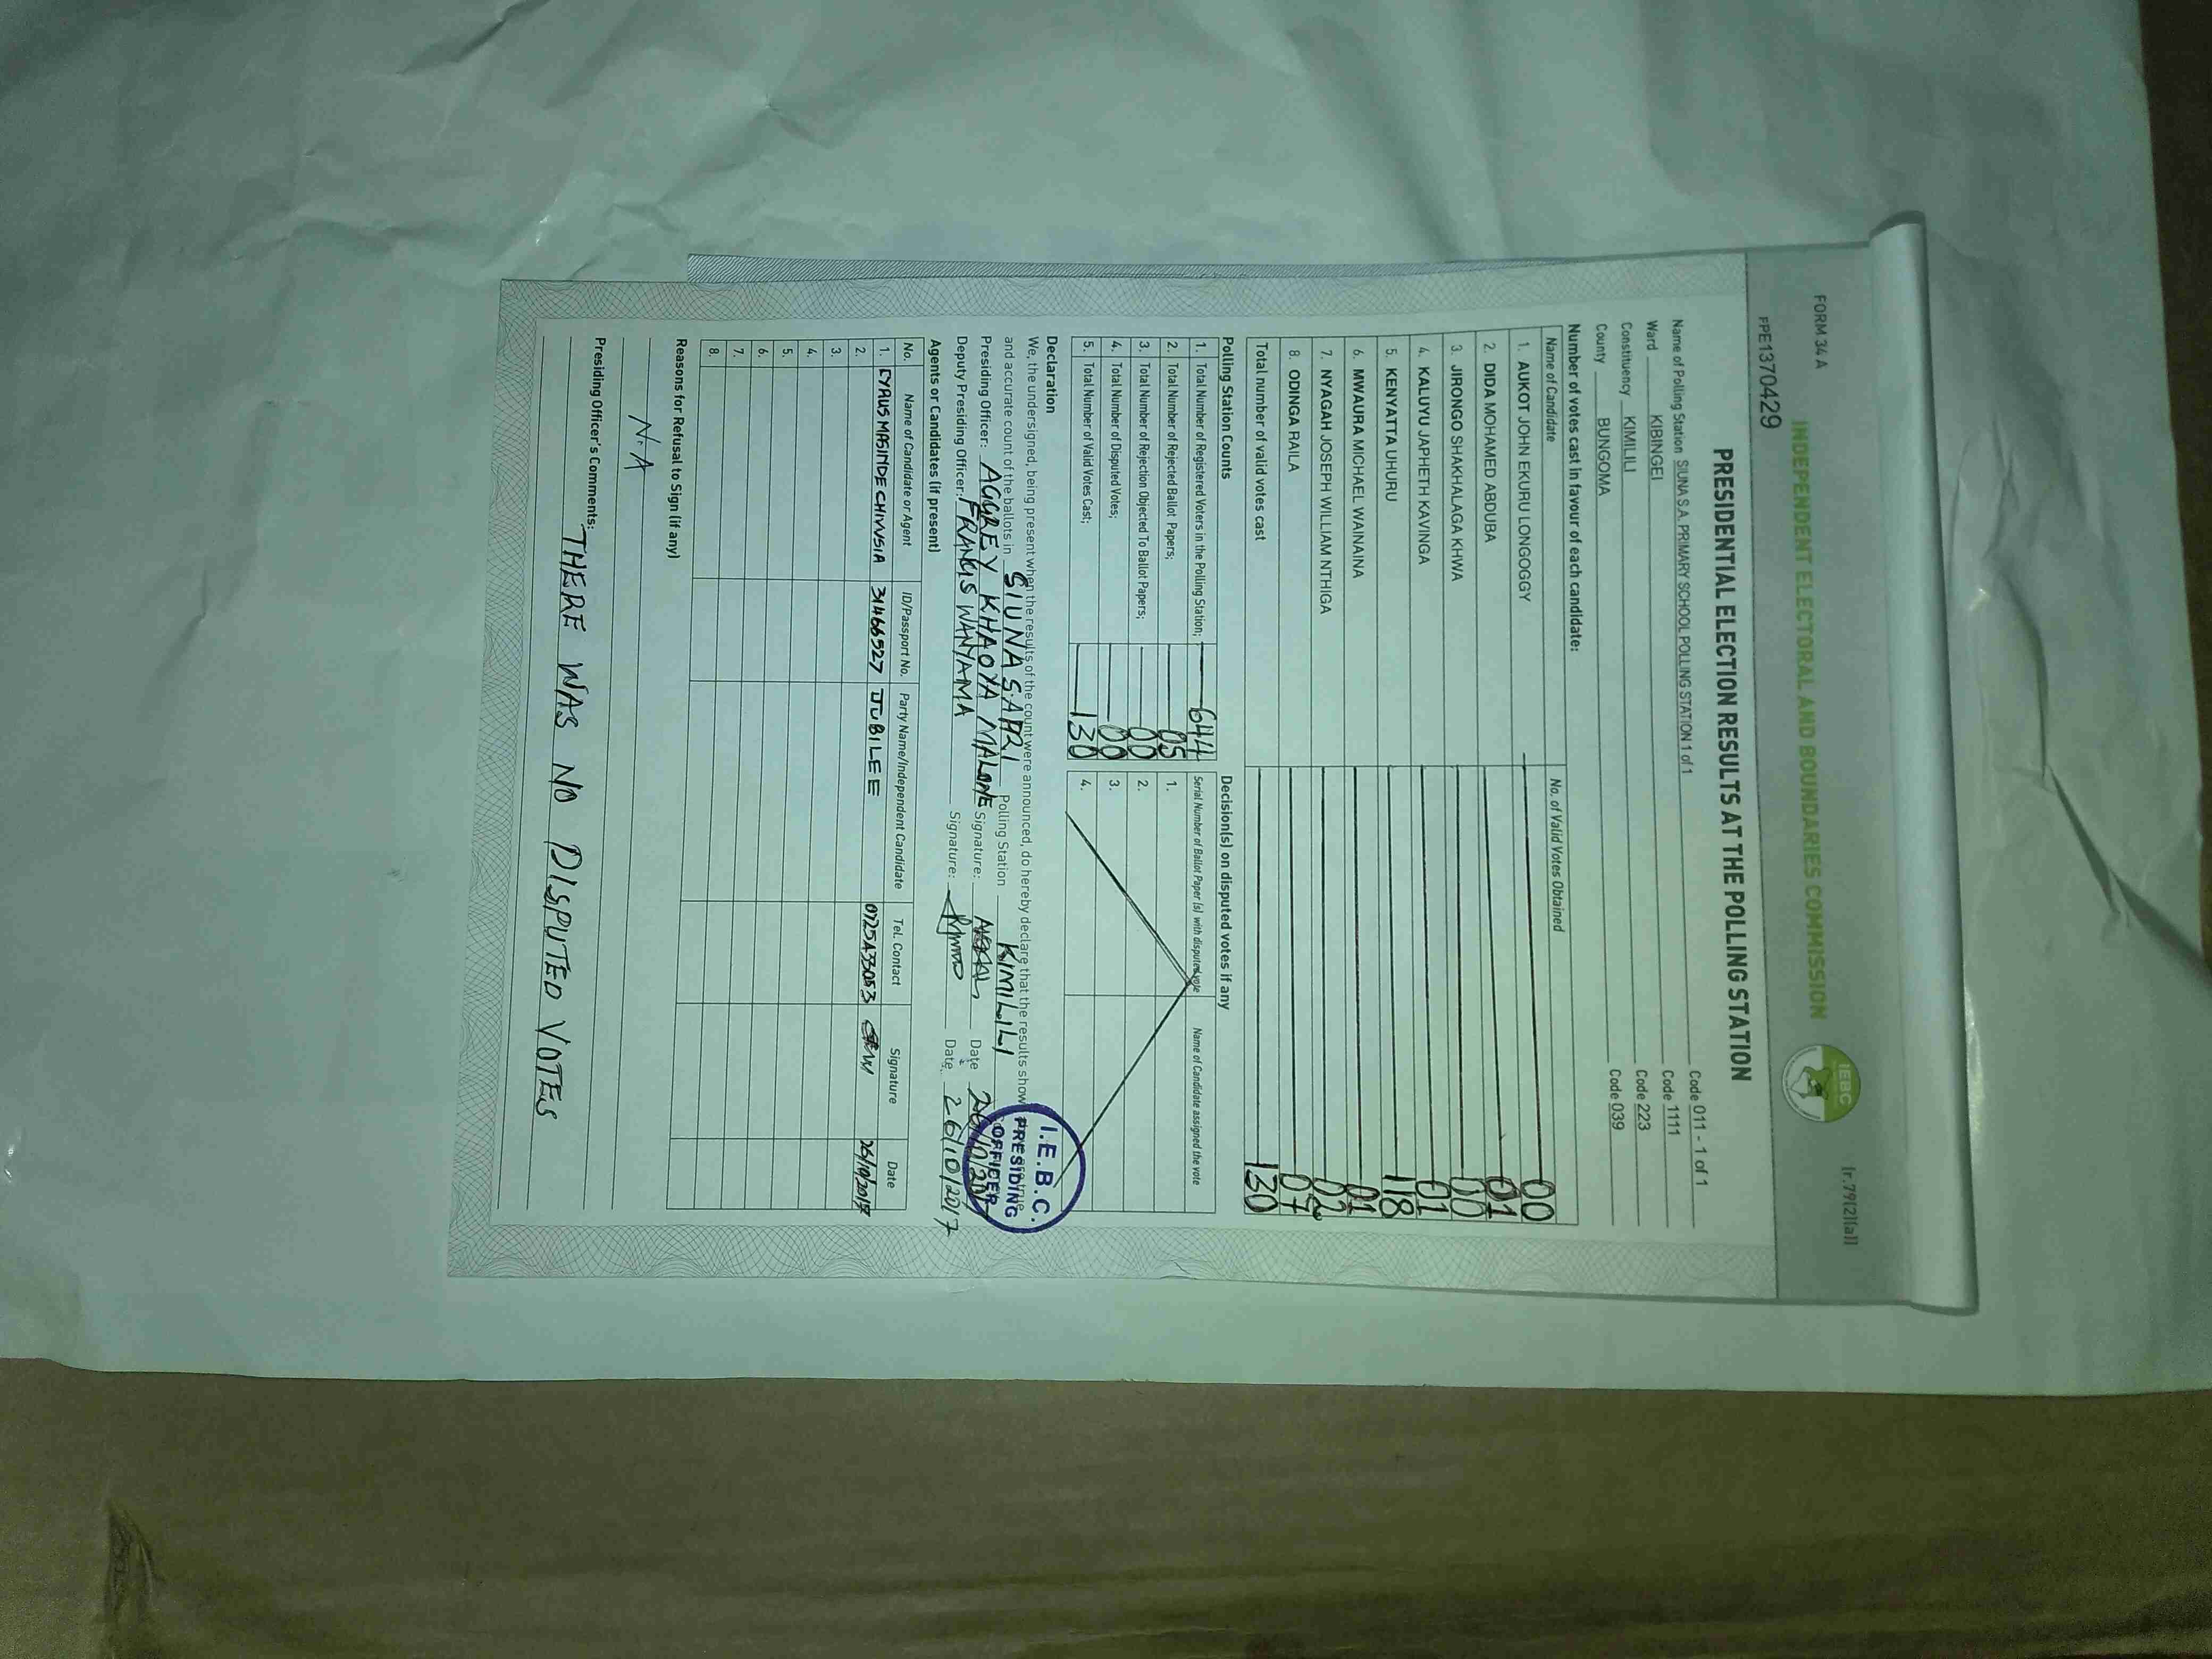 FORM 34 A
(r.79(2)(a))
INDEPENDENT ELECTORAL AND BOUNDARIES COMMISSION
IEBC
FPE1370429
PRESIDENTIAL ELECTION RESULTS AT THE POLLING STATION
Name of Polling Station SIUNA S.A. PRIMARY SCHOOL POLLING STATION 1 of 1 Code 011 - 1 of 1
Ward KIBINGEI Code 1111
Constituency KIMILILI Code 223
County BUNGOMA Code 039
Number of votes cast in favour of each candidate:
Name of Candidate No. of Valid Votes Obtained
1. AUKOT JOHN EKURU LONGOGGY 00
2. DIDA MOHAMED ABDUBA 01
3. JIRONGO SHAKHALAGA KHWA 00
4. KALUYU JAPHETH KAVINGA 01
5. KENYATTA UHURU 118
6. MWAURA MICHAEL WAINAINA 01
7. NYAGAH JOSEPH WILLIAM NTHIGA 02
8. ODINGA RAILA 07
Total number of valid votes cast 130
Polling Station Counts
1. Total Number of Registered Voters in the Polling Station; 644
2. Total Number of Rejected Ballot Papers; 05
3. Total Number of Rejection Objected To Ballot Papers; 00
4. Total Number of Disputed Votes; 00
5. Total Number of Valid Votes Cast; 130
Decision(s) on disputed votes if any
Serial Number of Ballot Paper (s) with disputed vote Name of Candidate assigned the vote
1.
2.
3.
4.
Declaration
We, the undersigned, being present when the results of the count were announced, do hereby declare that the results shown
and accurate count of the ballots in SIUNA S.A PRI Polling Station KIMILILI
Presiding Officer: AGGREY KHAOYA MALOME Signature: Date 26/10/2017
Deputy Presiding Officer: FRANCIS WANYAMA Signature: Date 26/10/2017
I.E.B.C.
PRESIDING
OFFICER
Agents or Candidates (if present)
No. Name of Candidate or Agent ID/Passport No. Party Name/Independent Candidate Tel. Contact Signature Date
1. CYRUS MASINDE 31466527 JUBILEE 26/10/2017
2.
3.
4.
5.
6.
7.
8.
Reasons for Refusal to Sign (if any)
N.A
Presiding Officer's Comments:
THERE WAS NO DISPUTED VOTES